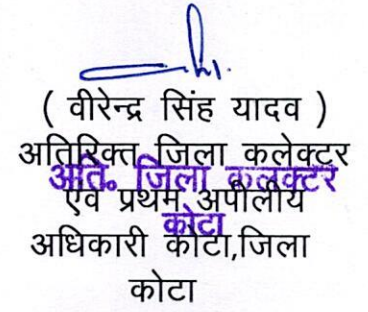 ( वीरेन्द्र सिंह यादव )
अतिरिक्त जिला कलेक्टर
अति० जिला कलक्टर
एवं प्रथम अपीलीय
कोटा
अधिकारी कोटा,जिला
कोटा